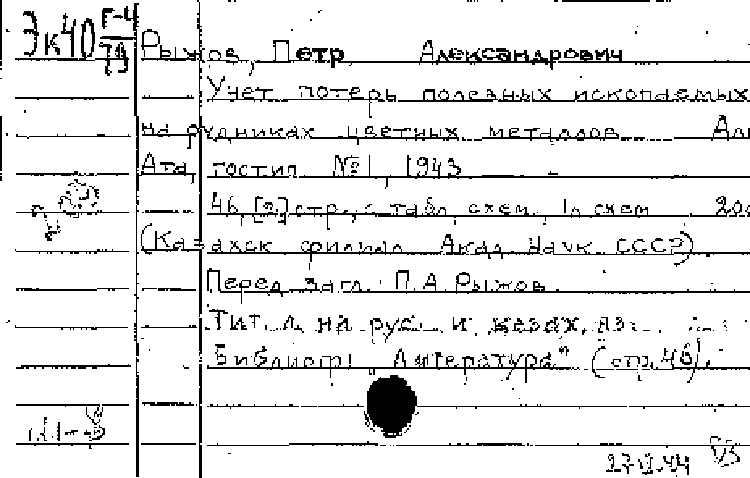 Эк40 Г-4
79
Рыжов, Петр Александрович
Учет потерь полезных ископаемых
на рудниках цветных металлов Ал
Ата, гостип №1, 1943
46, [2] стр., с табл. схем. 1 л. схем 200
(Казахск филиал Акад Наук СССР)
Перед загл. П.А Рыжов
Тит. л. на рус. и казах. яз.
Библиогр „Литература" (стр. 46).